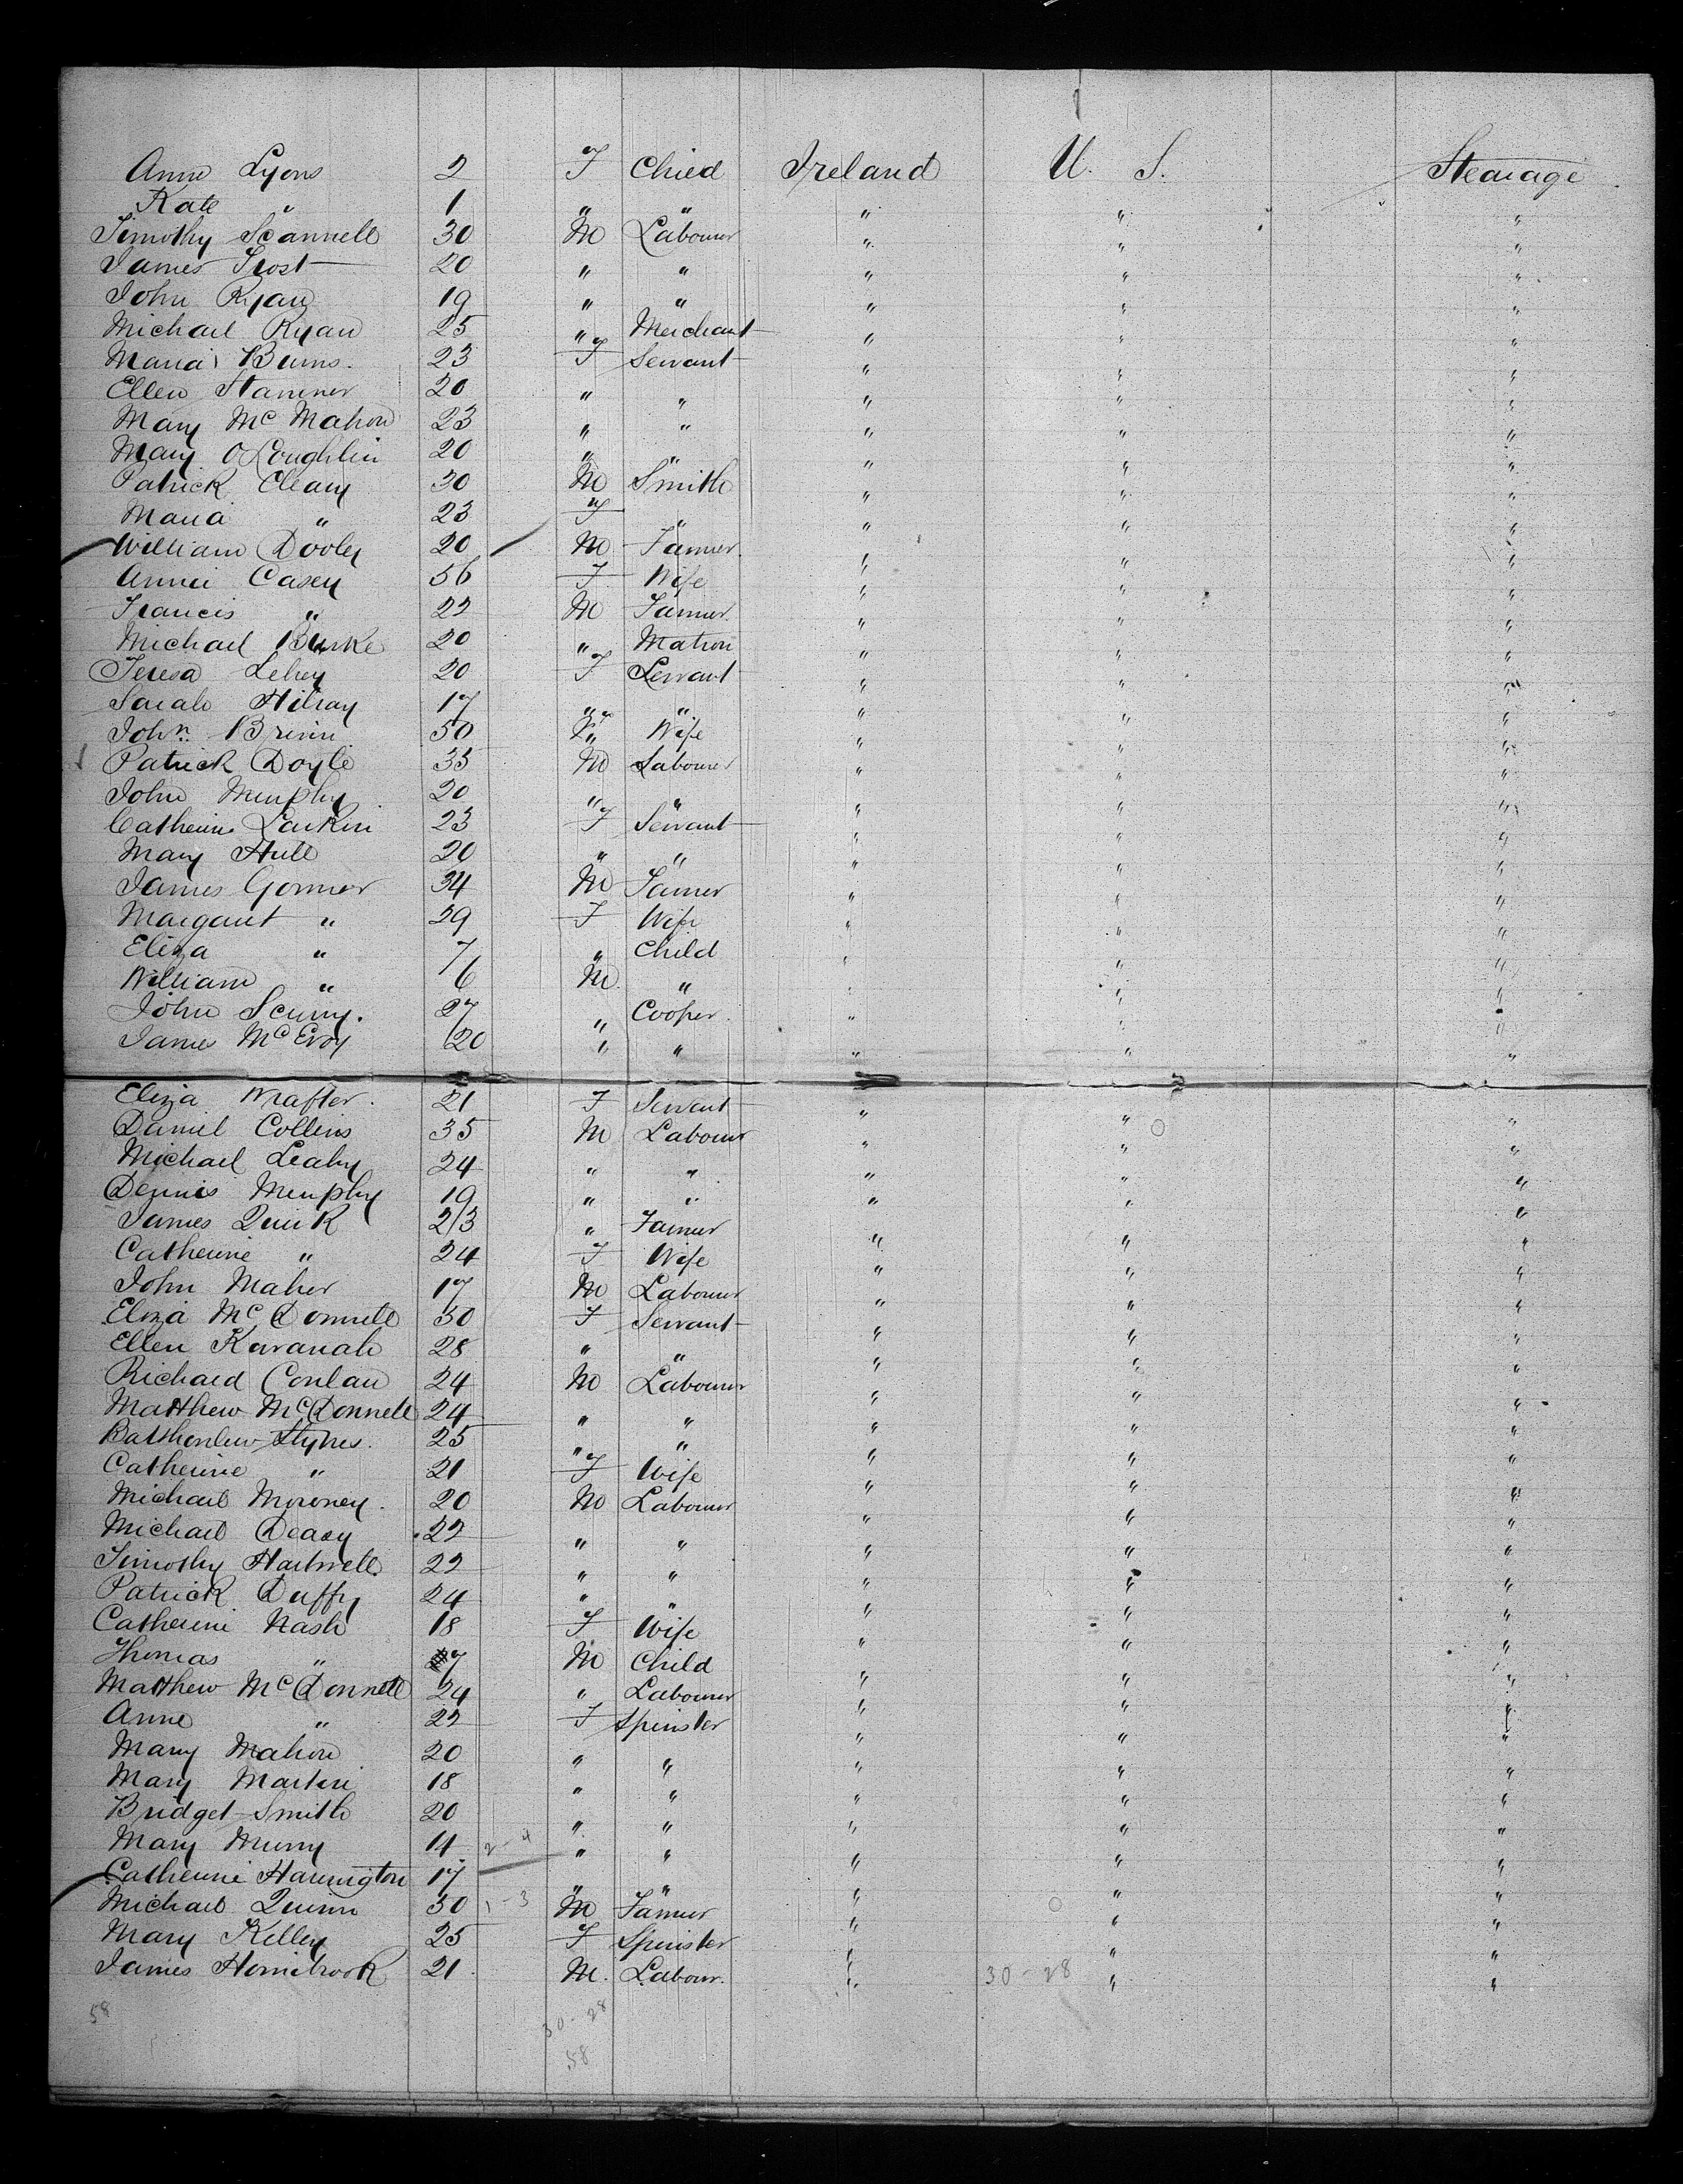 Anne Lyons 2 F Child Ireland U. S. Stearage
Kate " 1 " " " " "
Timothy Scannell 30 M Labourer " " "
James Frost 20 " " " " "
John Ryan 19 " " " " "
Michael Ryan 25 " Merchant " " "
Maria Burns. 23 F Servant " " "
Ellen Stammer 20 " " " " "
Mary McMahon 23 " " " " "
Mary OLoughlin 20 " " " " "
Patrick Cleary 30 M Smith " " "
Maria " 23 F " " " "
William Dooley 20 M Farmer " " "
Annie Casey 56 F Wife " " "
Francis " 22 M Farmer " " "
Michael Burke 20 " Matron " " "
Teresa Lehey 20 F Servant " " "
Sarah Hilray 17 " " " " "
John Brinn 50 F Wife " " "
Patrick Doyle 35 M Labourer " " "
John Murphy 20 " " " " "
Catherine Larkin 23 F Servant " " "
Mary Hull 20 " " " " "
James Gormer 34 M Farmer " " "
Margaret " 29 F Wife " " "
Eliza " 7 " Child " " "
William " 6 M " " " "
John Scurry. 27 " Cooper " " "
James McEvoy 20 " " " " "
Eliza Wrafter. 21 F Servant " " "
Daniel Collins 35 M Labourer " " "
Michael Leahy 24 " " " " "
Dennis Murphy 19 " " " " "
James Quirk 23 " Farmer " " "
Catherine " 24 F Wife " " "
John Maher 17 M Labourer " " "
Eliza McDonnell 30 F Servant " " "
Ellen Kavanah 28 " " " " "
Richard Conlan 24 M Labourer " " "
Matthew McDonnell 24 " " " " "
Batthomlew Stynes. 25 " " " " "
Catherine " 21 F Wife " " "
Michael Moroney. 20 M Labourer " " "
Michael Deasy 22 " " " " "
Timothy Hartnell 22 " " " " "
Patrick Duffy 24 " " " " "
Catherine Nash 18 F Wife " " "
Thomas " 7 M Child " " "
Matthew McDonnell 24 " Labourer " " "
Anne " 22 F Spinster " " "
Mary Mahon 20 " " " " "
Mary Martin 18 " " " " "
Bridget Smith 20 " " " " "
Mary Murry 14 2-4 " " " " "
Catherine Harrington 17 " " " " "
Michael Quinn 30 1-3 M Farmer " " "
Mary Kelley 25 F Spinster " " "
James Hornibrook 21 M. Labour. " 30-28 " "
58 30-28
58